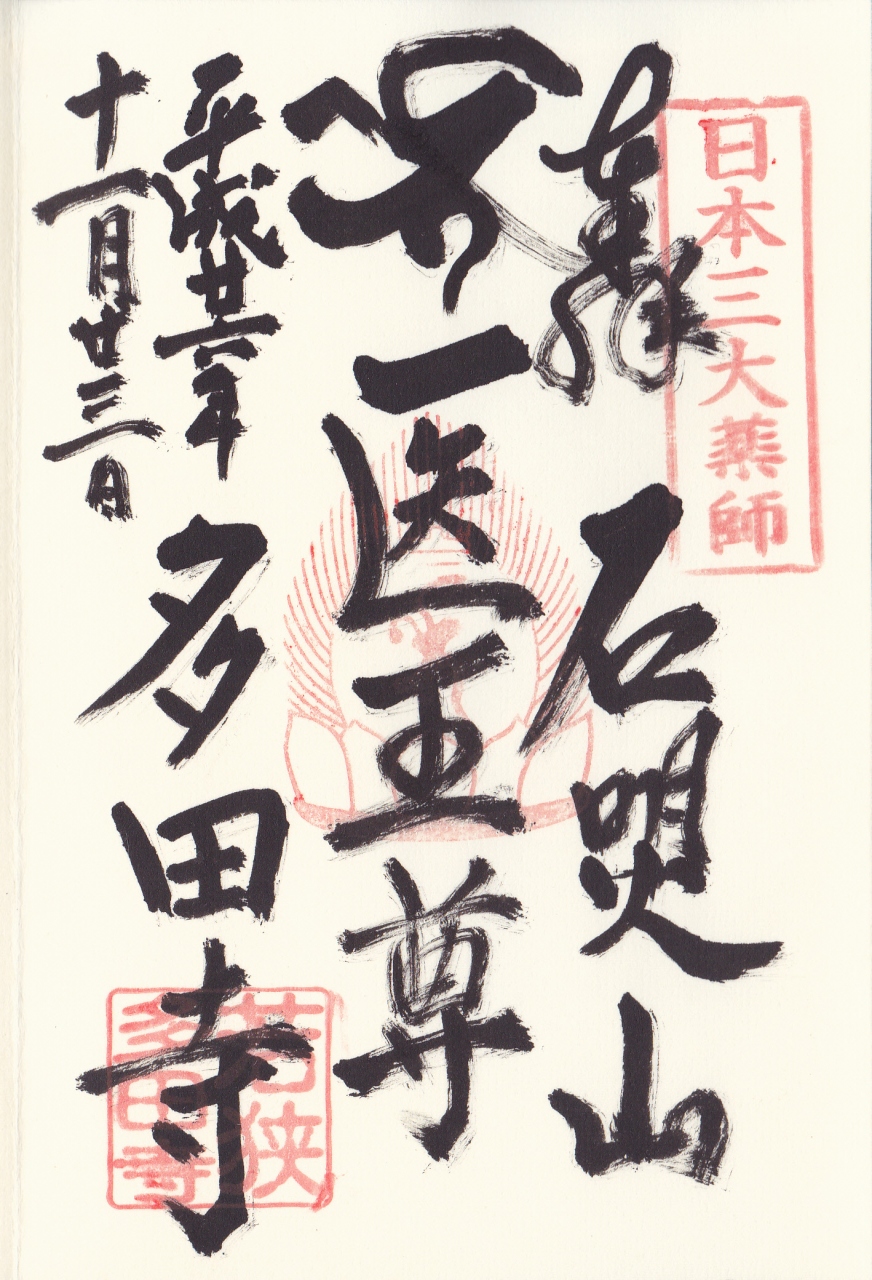 日本三大薬師
奉拝 石照山
医王尊
平成廿六年
十一月廿三日
多田寺
若狭
多田寺